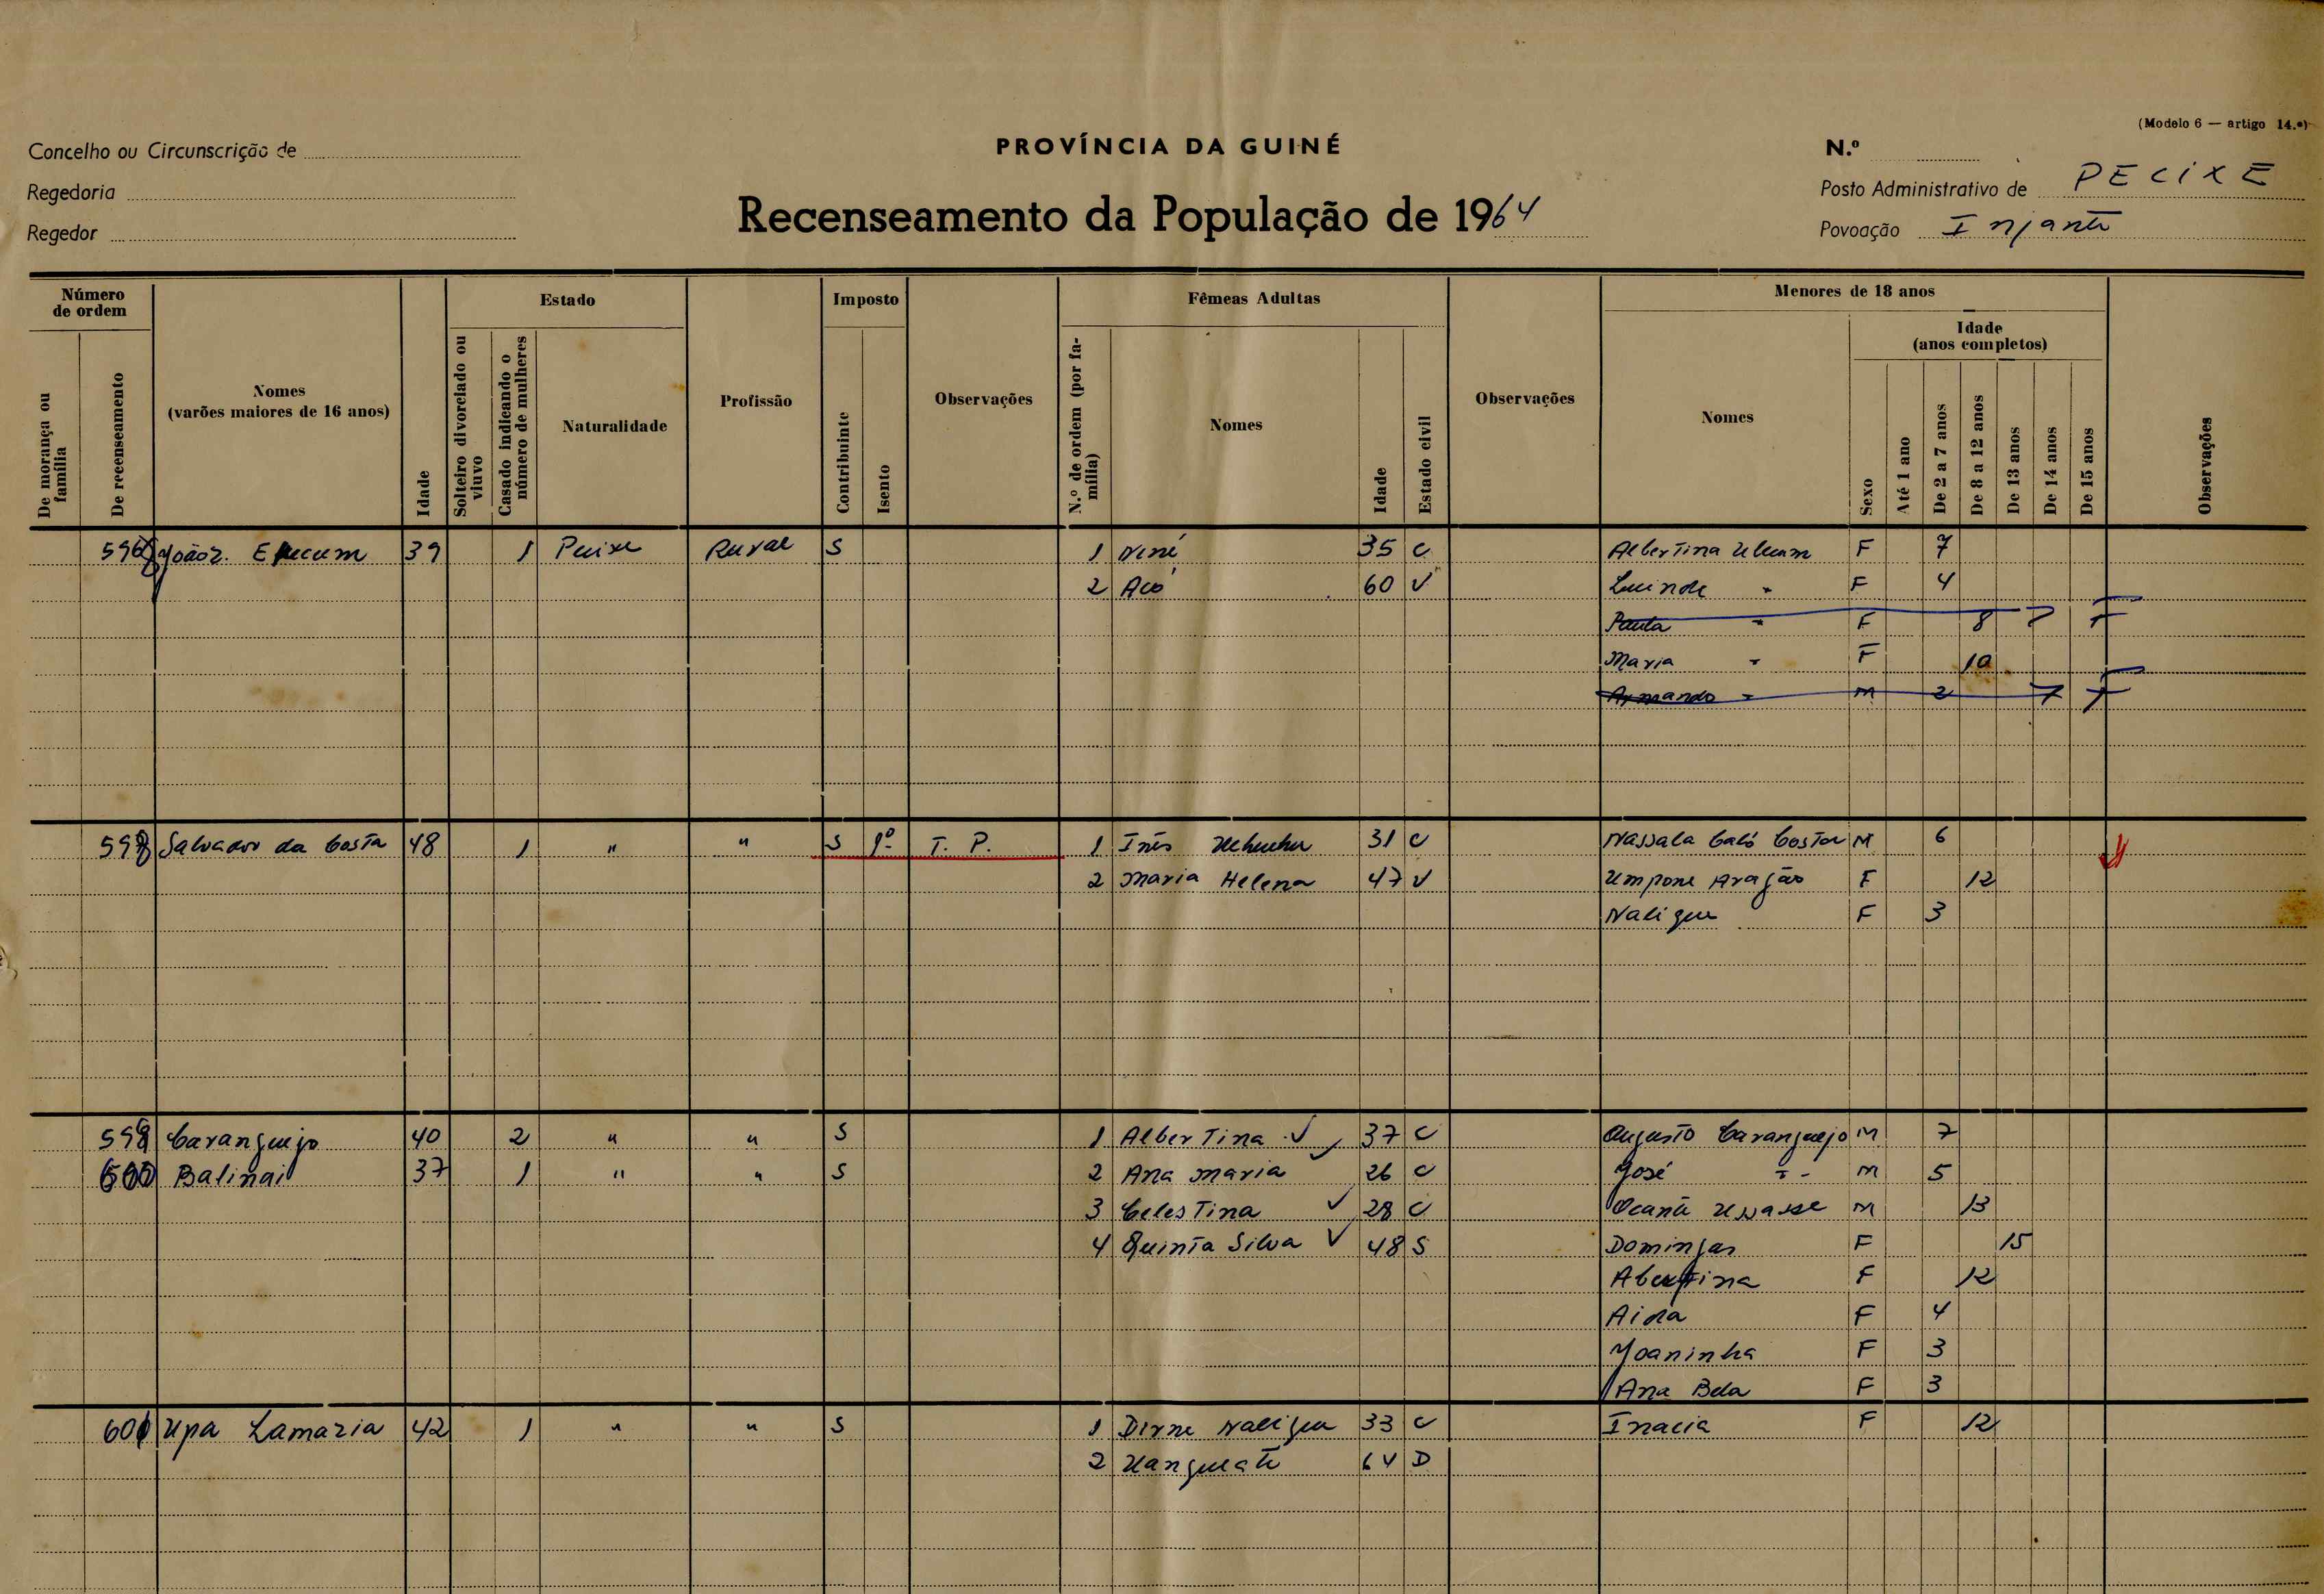 (Modelo 6 — artigo 14.º)
Concelho ou Circunscrição de
PROVÍNCIA DA GUINÉ
N.º
Regedoria
Recenseamento da População de 1964
Posto Administrativo de PECIXE
Regedor
Povoação Injante
Número de ordem
Estado
Imposto
Fêmeas Adultas
Menores de 18 anos
De morança ou família
De recenseamento
Nomes (varões maiores de 16 anos)
Idade
Solteiro divorciado ou viuvo
Casado indicando o número de mulheres
Naturalidade
Profissão
Contribuinte
Isento
Observações
N.º de ordem (por família)
Nomes
Idade
Estado civil
Observações
Nomes
Sexo
Idade (anos completos)
Até 1 ano
De 2 a 7 anos
De 8 a 12 anos
De 13 anos
De 14 anos
De 15 anos
Observações
João 39 1 Rural S 1 Nené 35 C Albertina F 7
2 Acó 60 V F 4
Paula " F 8
Maria " F 10
Armando " M 2
598 Salvador da Costa 48 1 " " S T. P. 1 Inês 31 C Nassala Caló Costa M 6
2 Maria Helena 47 V Umpone Aragão F 12
Nalique F 3
599 Caranguejo 40 2 " " S 1 Albertina 37 C Augusto Caranguejo M 7
600 Balinai 37 1 " " S 2 Ana Maria 26 C José " M 5
3 Celestina 28 C M 13
4 Quinta Silva 48 S Domingas F 15
Albertina F 12
Aida F 4
Joaninha F 3
Ana Bela F 3
601 Upa Lamaria 42 1 " " S 1 Nalique 33 C Inacia F 12
2 64 D